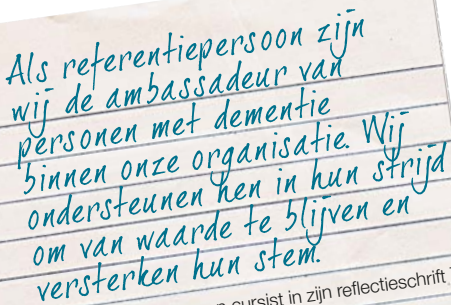 Als referentiepersoon zijn
wij de ambassadeur van
personen met dementie
binnen onze organisatie. Wij
ondersteunen hen in hun strijd
om van waarde te blijven en
versterken hun stem.
cursist in zijn reflectieschrift